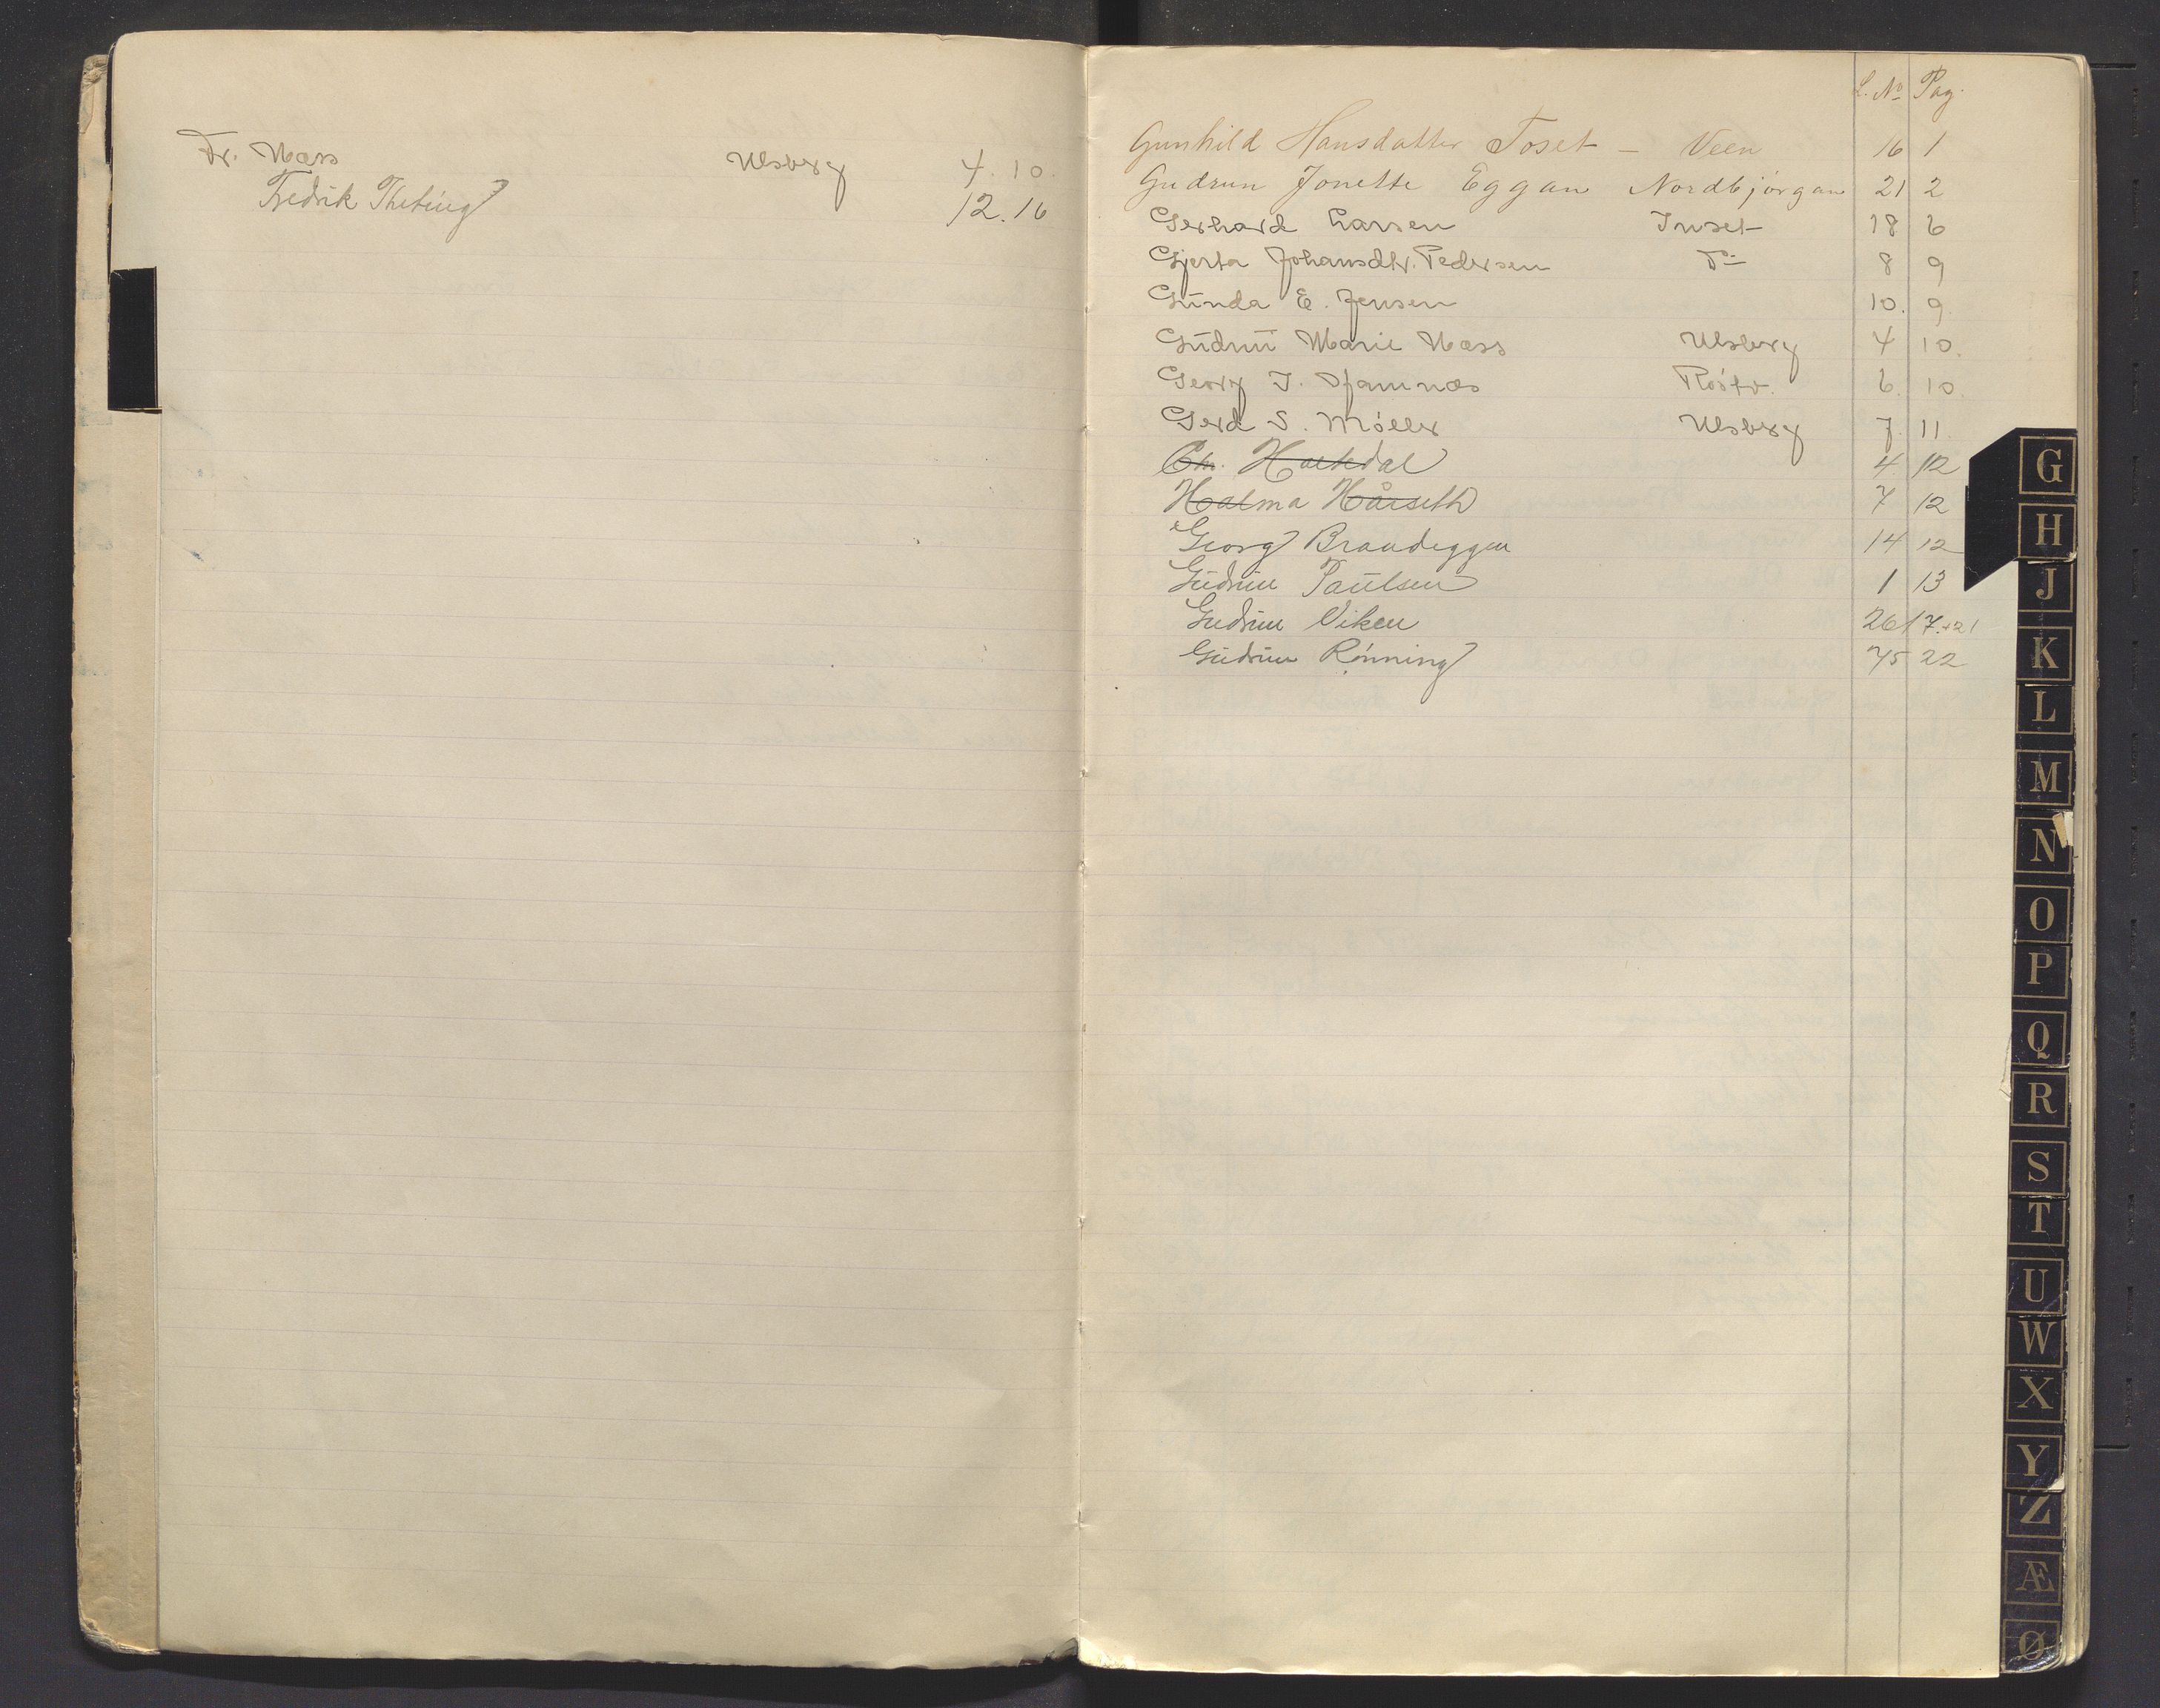 Fr. Næss Ulsberg 4. 10.
Fredrik Theting 12. 16
L. No Pag.
Gunhild Hansdatter Toset - Veen 16 1
Gudrun Jonette Eggan Nordbjörgan 21 2
Gerhard Larsen Inset 18 6
Gjerta Johansdtr. Pedersen Do 8 9
Gunda E. Jensen 10. 9.
Gudrun Marie Næss Ulsberg 4 10.
Georg J. 6. 10.
Gerd S. Möller Ulsberg 7. 11.
Chr. 4 12
Halma Hårseth 7 12
Georg Brandeggen 14 12
Gudrun Paulsen 1 13
Gudrun Viken 26 17.+21
Gudrun Rønning 75 22
G
H
J
K
L
M
N
O
P
Q
R
S
T
U
W
X
Y
Z
Æ
Ø